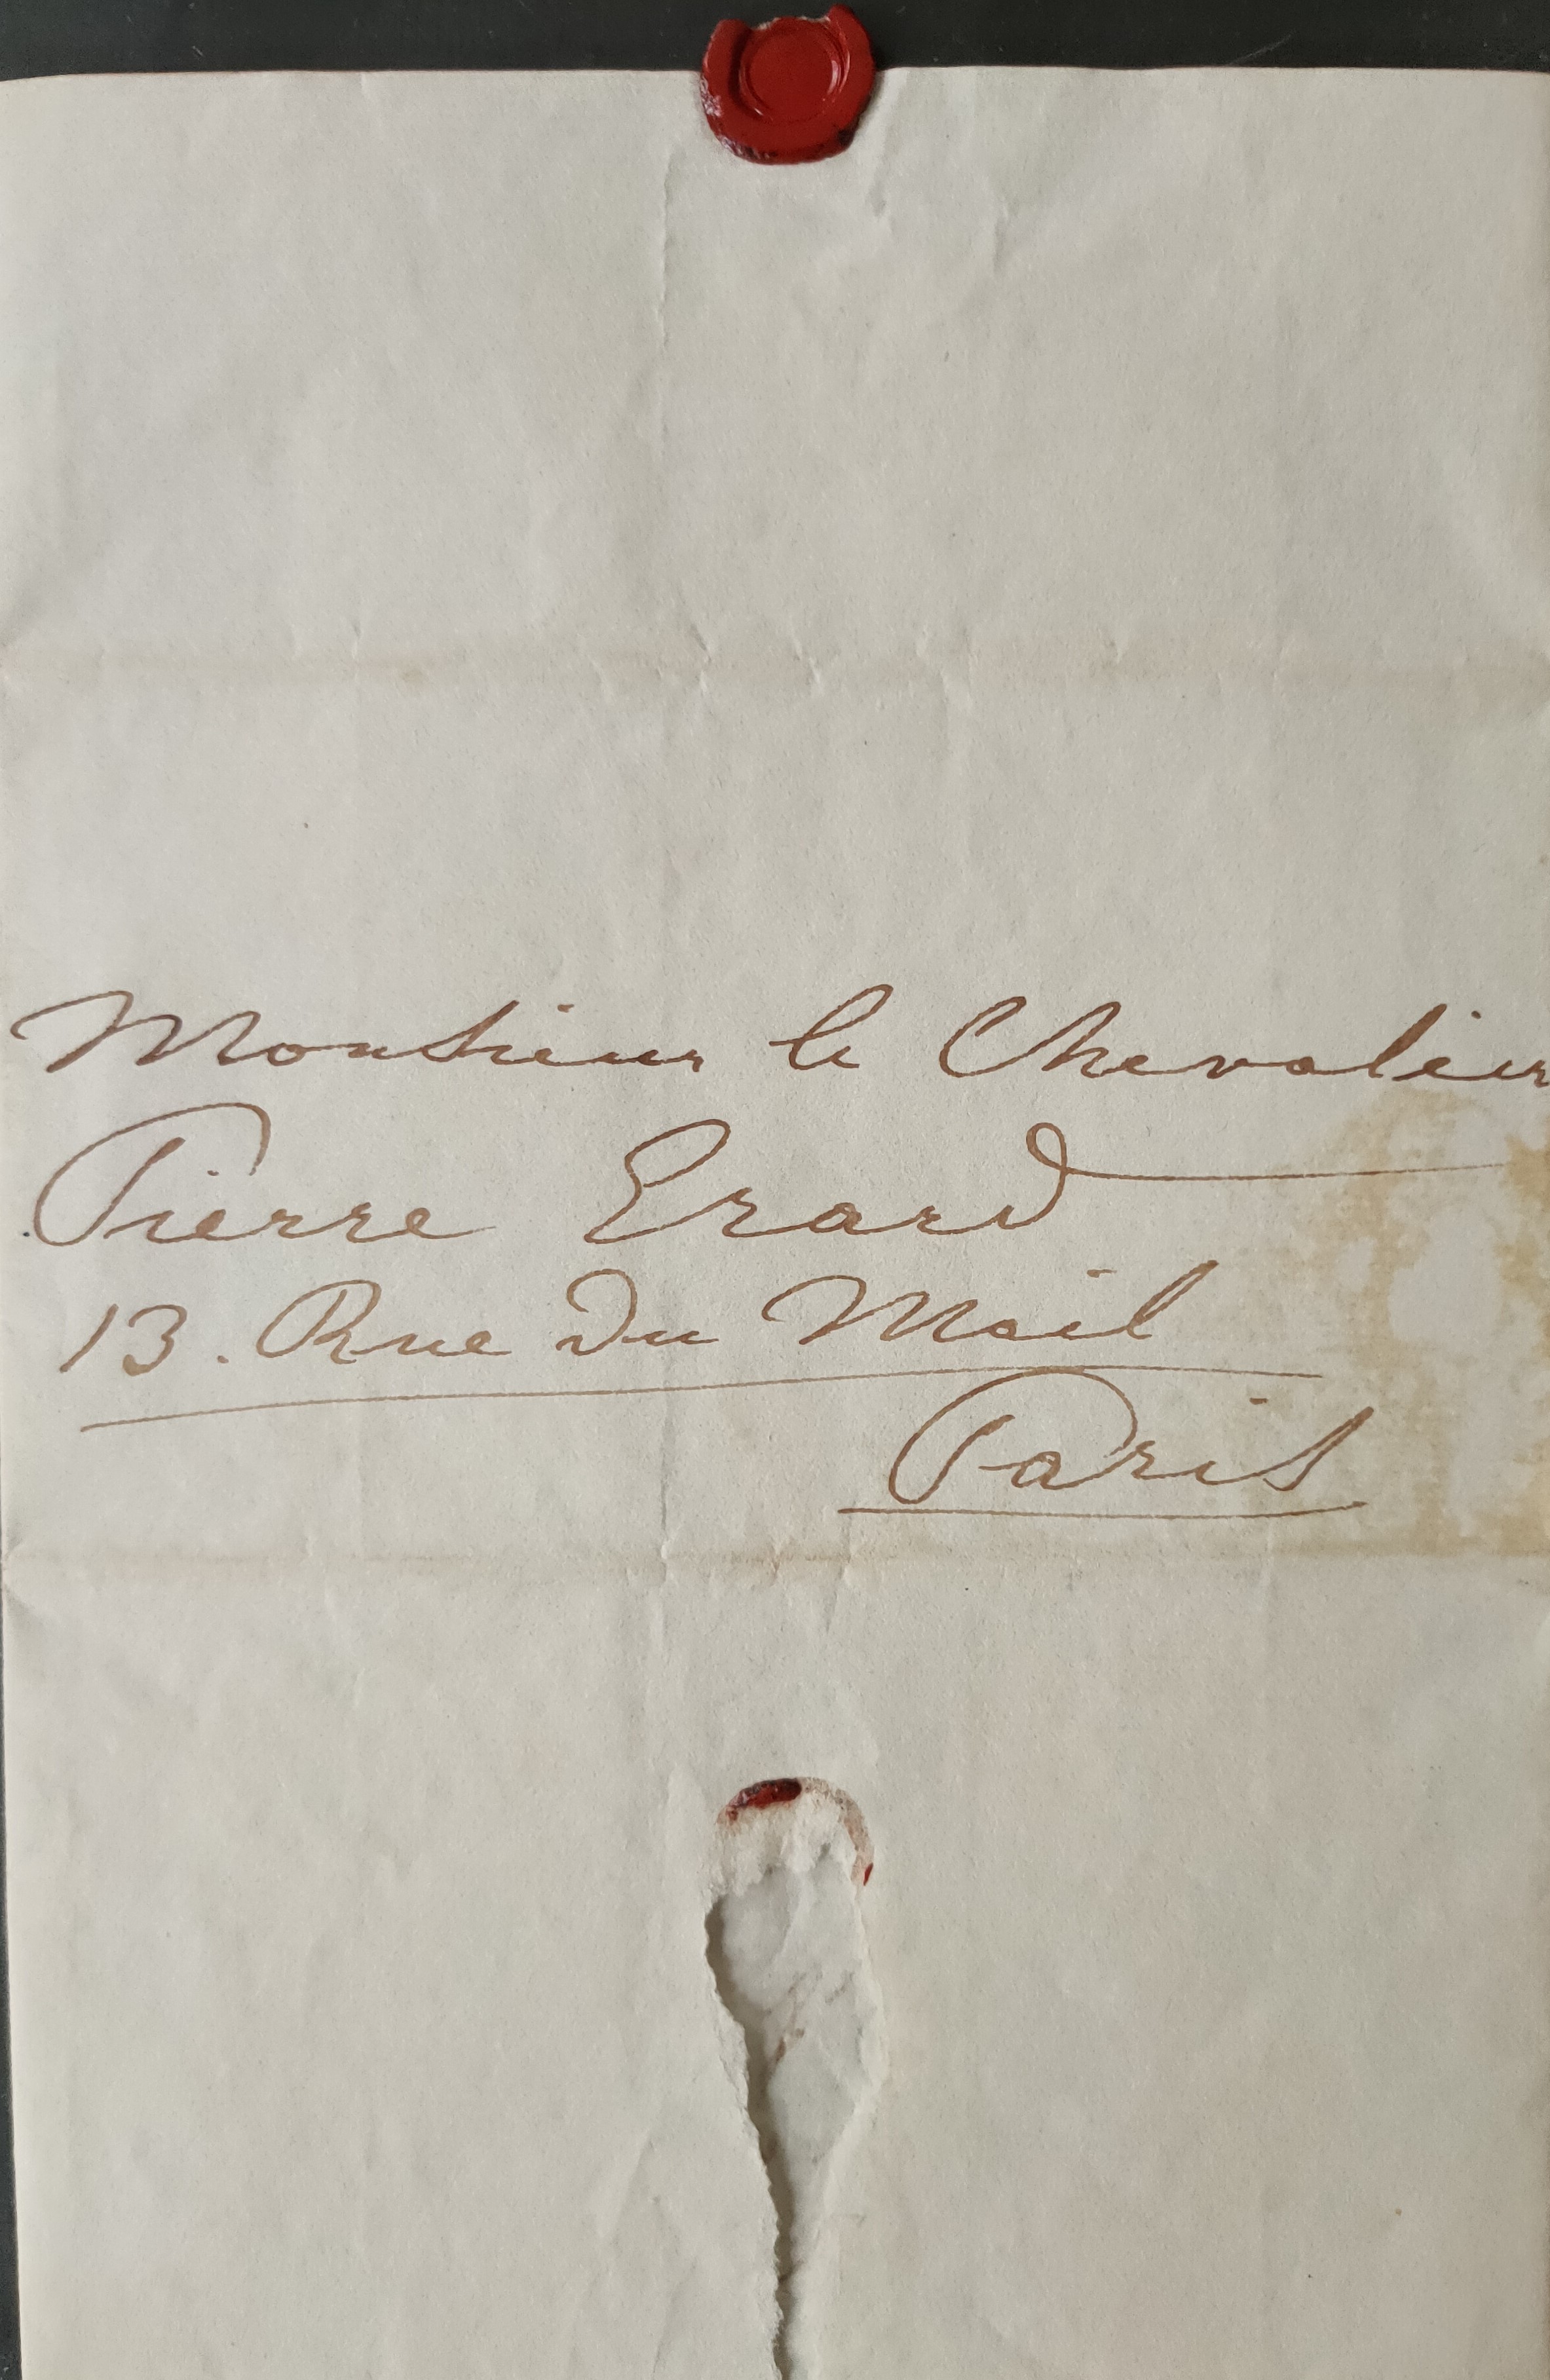 Monsieur le Chevalier
Pierre Erard
13. Rue du Mail
Paris